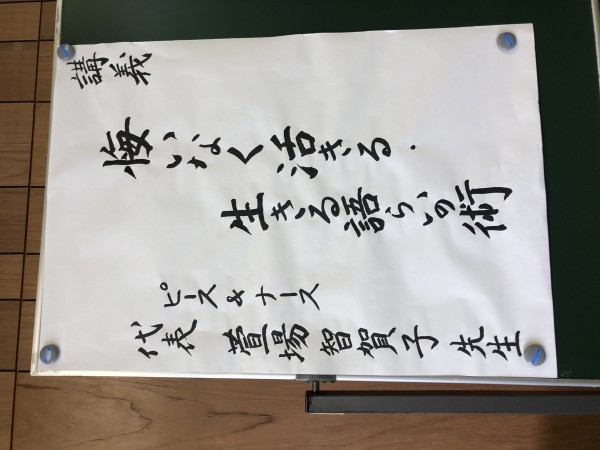 講義
悔いなく活きる・
生きる語らいの術
ピース&ナース
代表 萱場智賀子先生